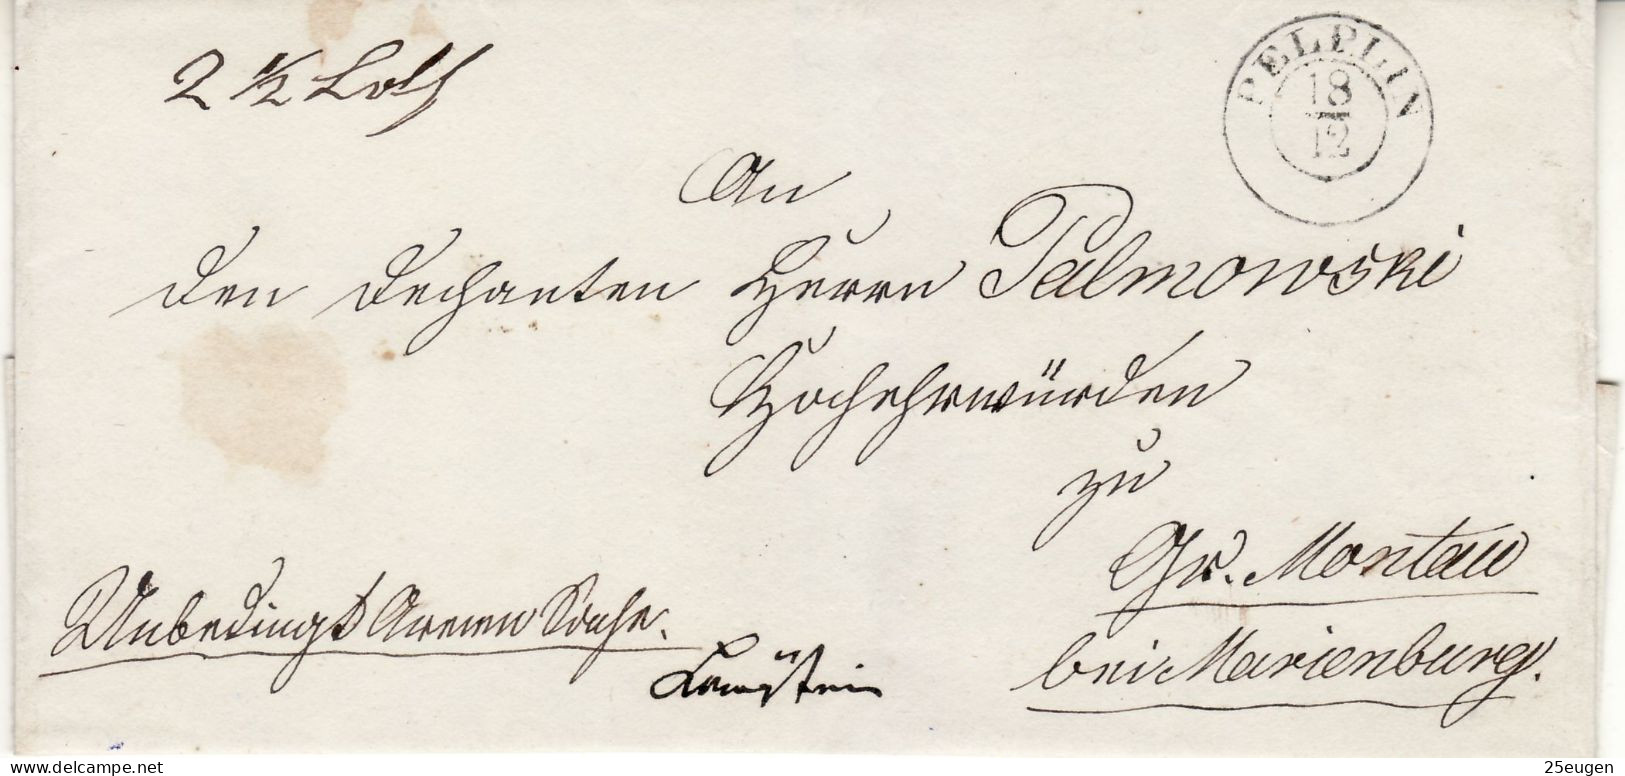 2 1/2 Loth
PELPLIN
18
12
An
den Dechanten Herrn Palmowski
Hochehrwürden
zu
Gr. Montau
bei Marienburg.
Unbedingt Armen Sache.
www.delcampe.net
25eugen